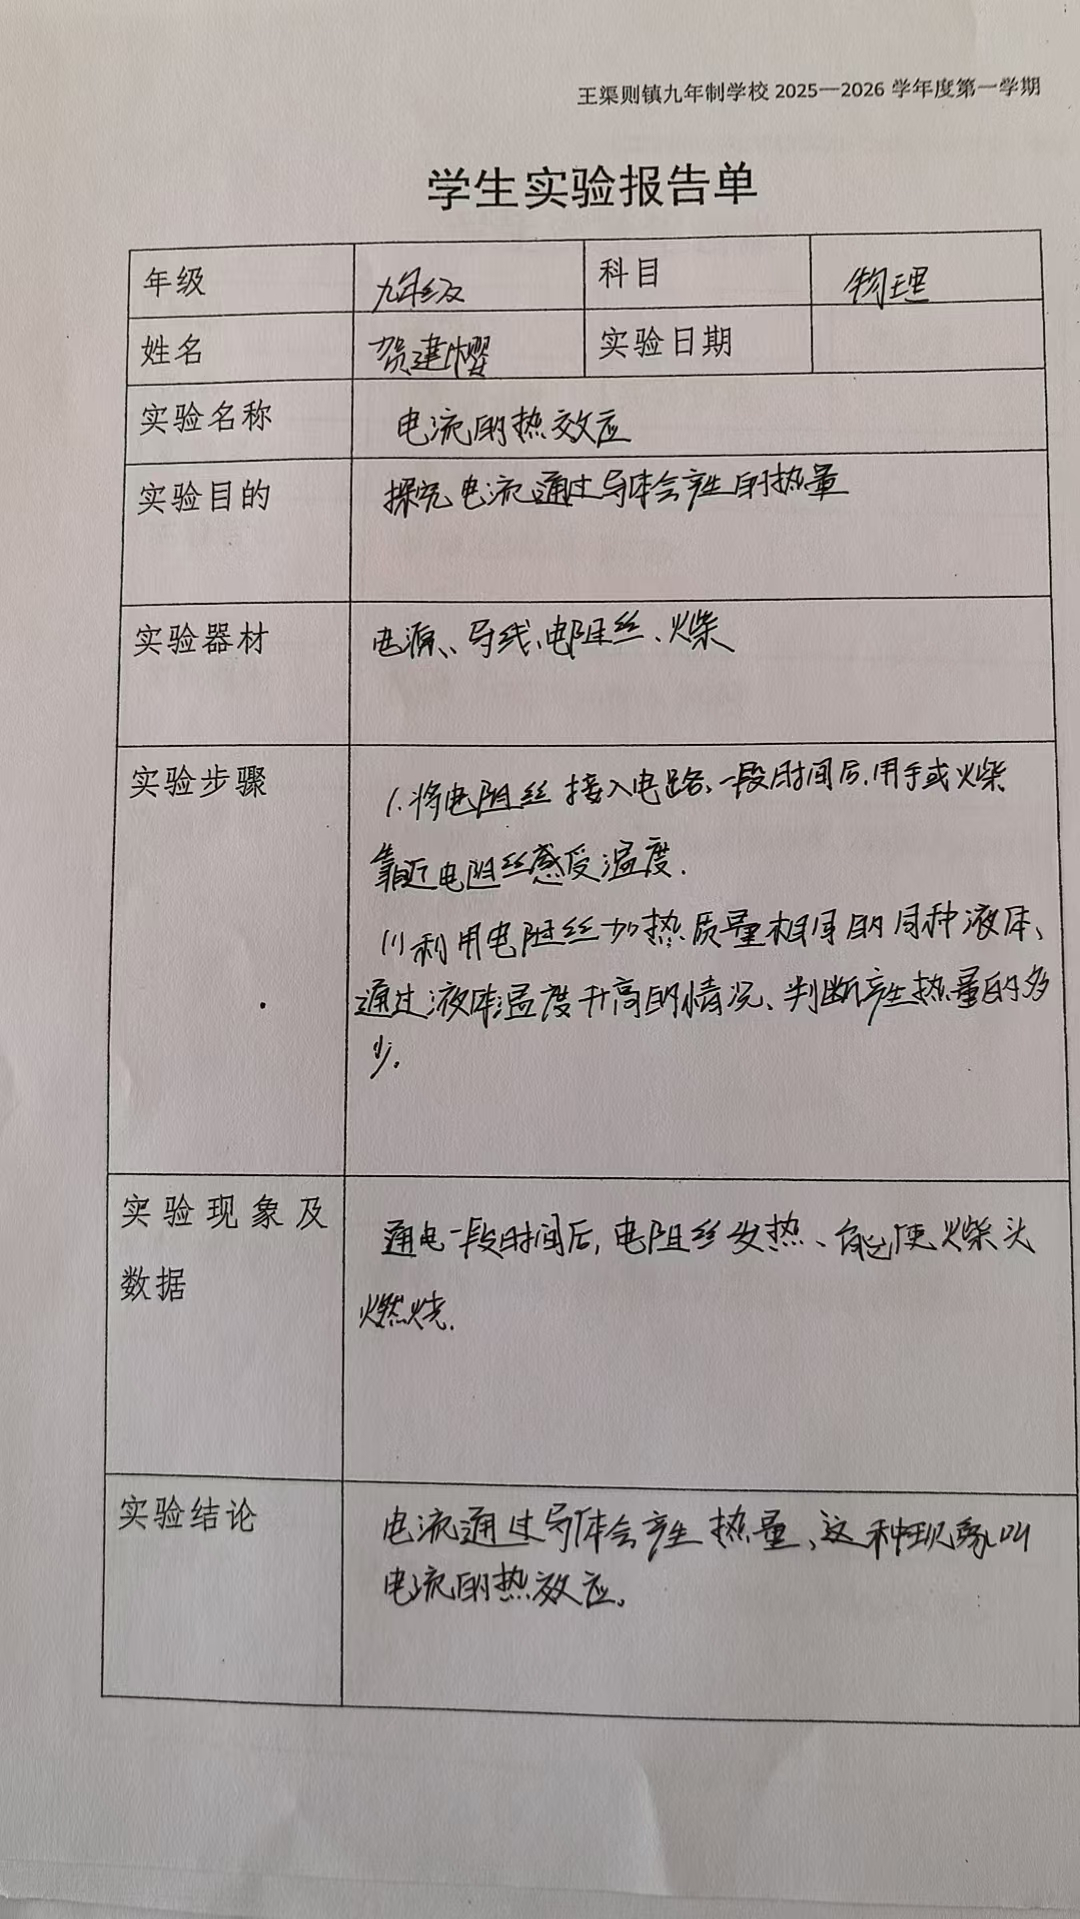 王渠则镇九年制学校 2025—2026 学年度第一学期
学生实验报告单
年级 九年级 科目 物理
姓名 贺建熠 实验日期
实验名称 电流的热效应
实验目的 探究电流通过导体会产生的热量
实验器材 电源、导线、电阻丝、火柴
实验步骤 1.将电阻丝接入电路,一段时间后,用手或火柴
靠近电阻丝感受温度.
(1)利用电阻丝加热质量相同的同种液体、
通过液体温度升高的情况、判断产生热量的多
少。
实验现象及 通电一段时间后,电阻丝发热、能使火柴头
数据 燃烧.
实验结论 电流通过导体会产生热量、这种现象叫
电流的热效应。